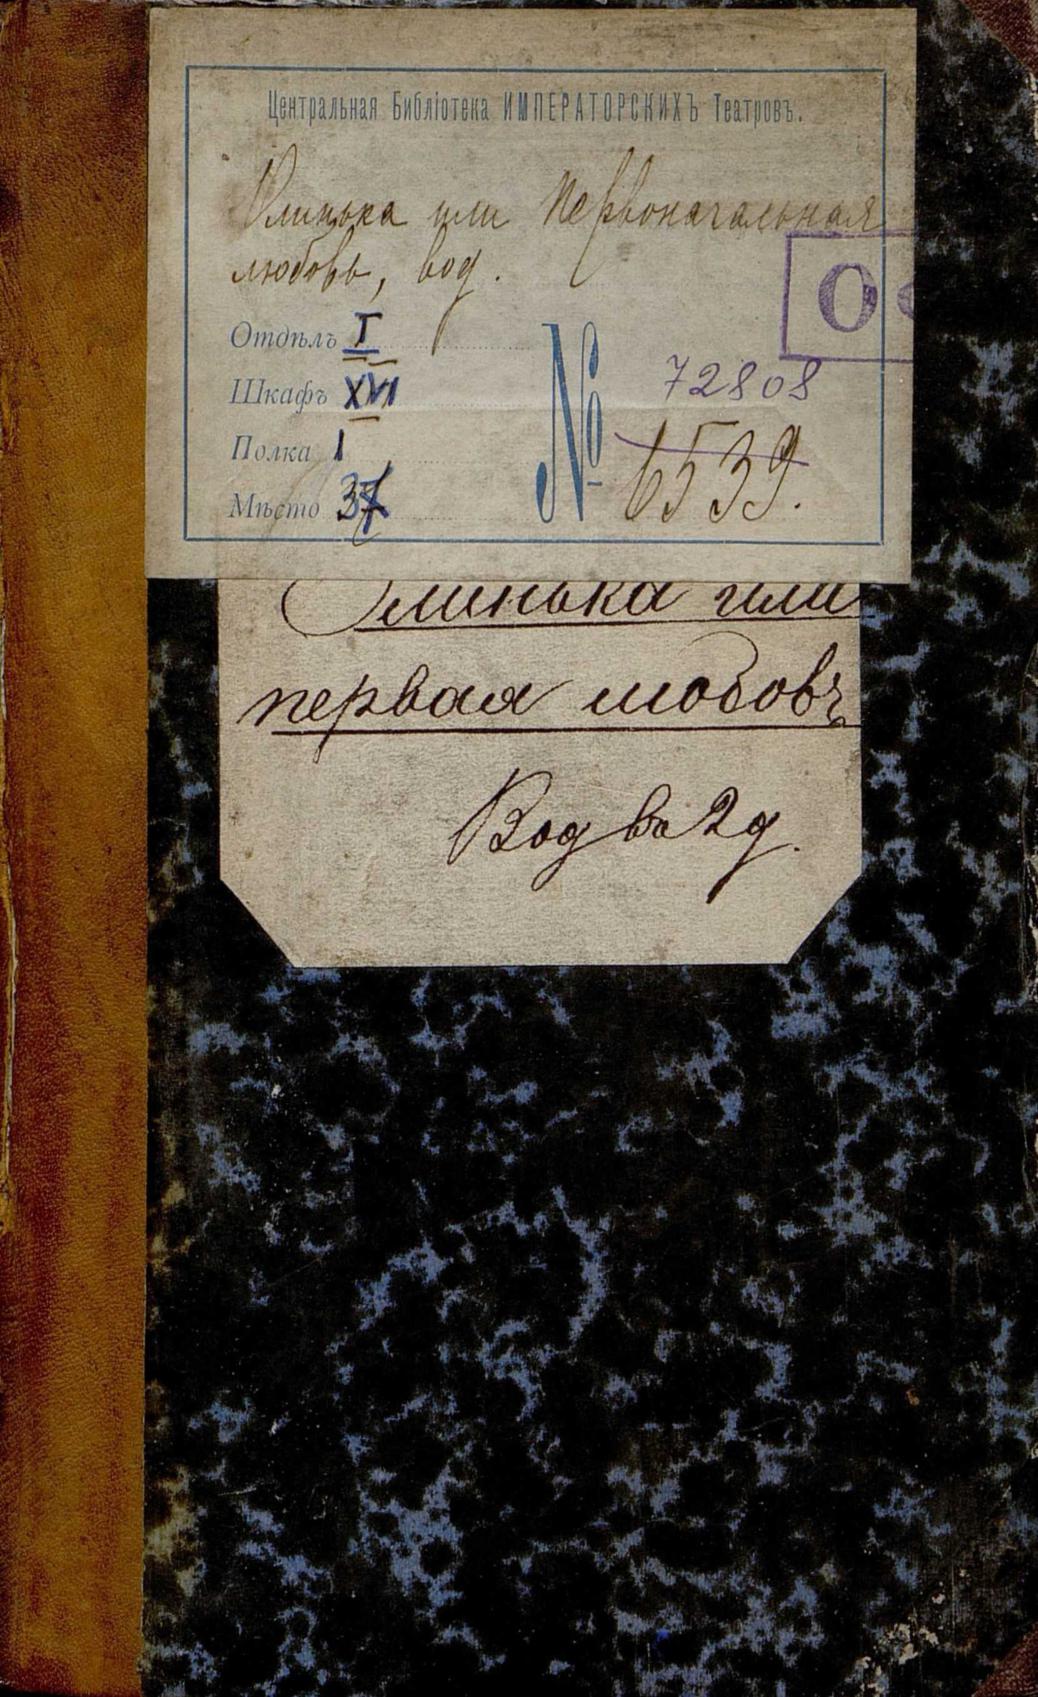 Центральная Библіотека ИМПЕРАТОРСКИХЪ Театровъ.
Олинька или Первоначальная
любовь, вод.
О
Отдѣлъ I
Шкафъ XVI
Полка 1
Мѣсто
№ 72808
6539.
Олинька или
первая любовь
Вод въ 2 д.